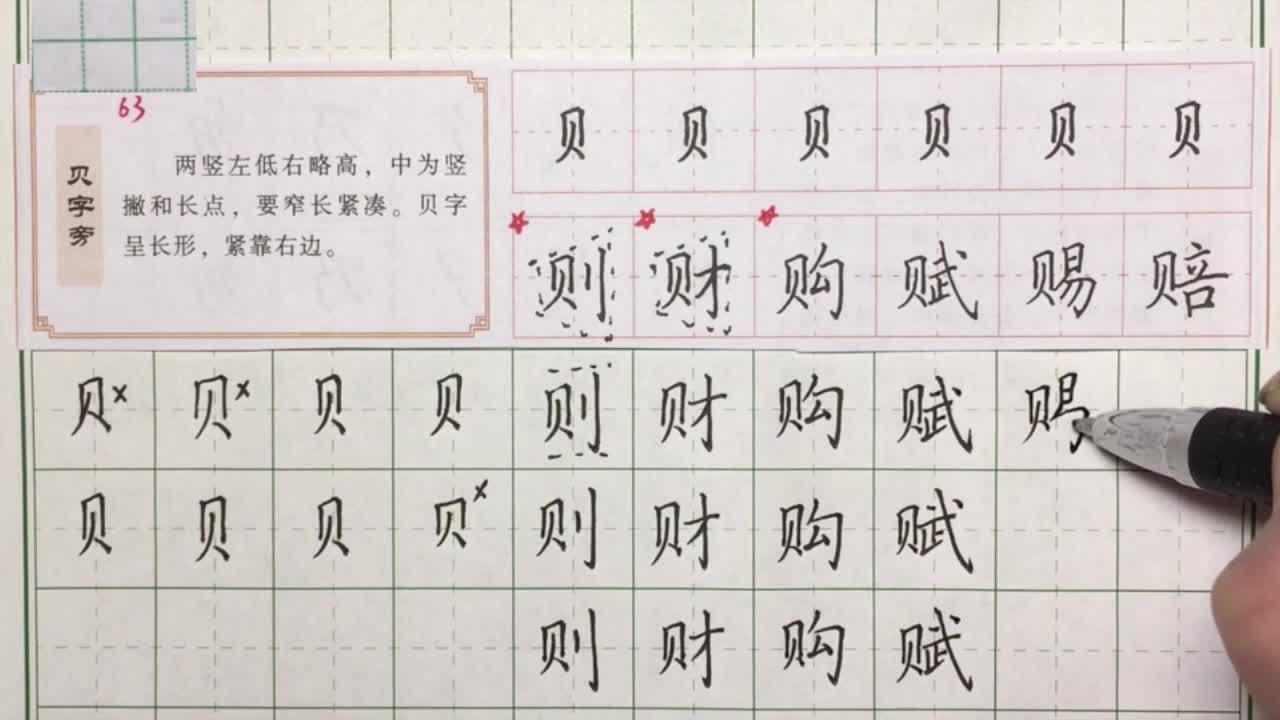 63
贝字旁
两竖左低右略高，中为竖
撇和长点，要窄长紧凑。贝字
呈长形，紧靠右边。
贝 贝 贝 贝 贝 贝
则 财 购 赋 赐 赔
贝× 贝× 贝 贝 则 财 购 赋 赐
贝 贝 贝 贝× 则 财 购 赋
则 财 购 赋